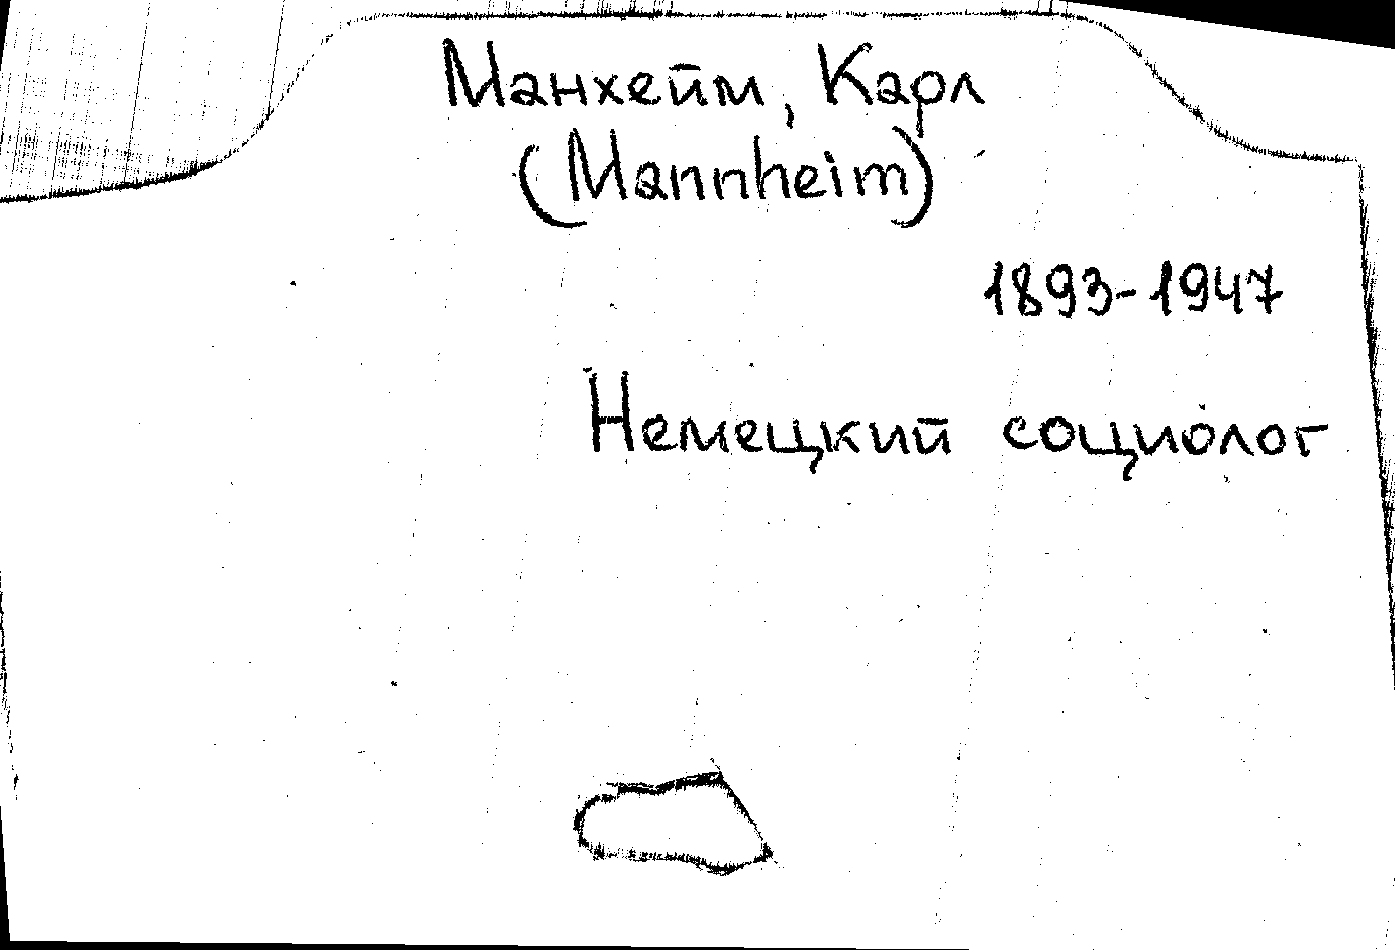 Манхейм, Карл
(Mannheim)
1893-1947
Немецкий социолог